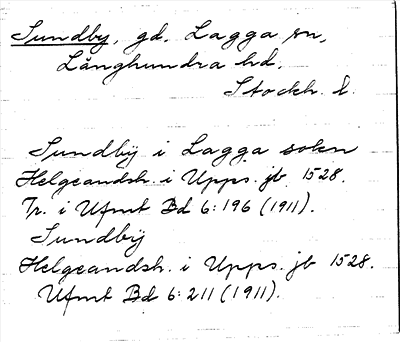 Sundby, gd. Lagga sn,
Långhundra hd.
Stockh. l.
Sundbÿ i Lagga sokn
Helgeandsh. i Upps. jb 1528.
Tr. i Ufmt Bd 6:196 (1911).
Sundbÿ
Helgeandsh. i Upps. jb 1528.
Ufmt Bd 6:211 (1911).